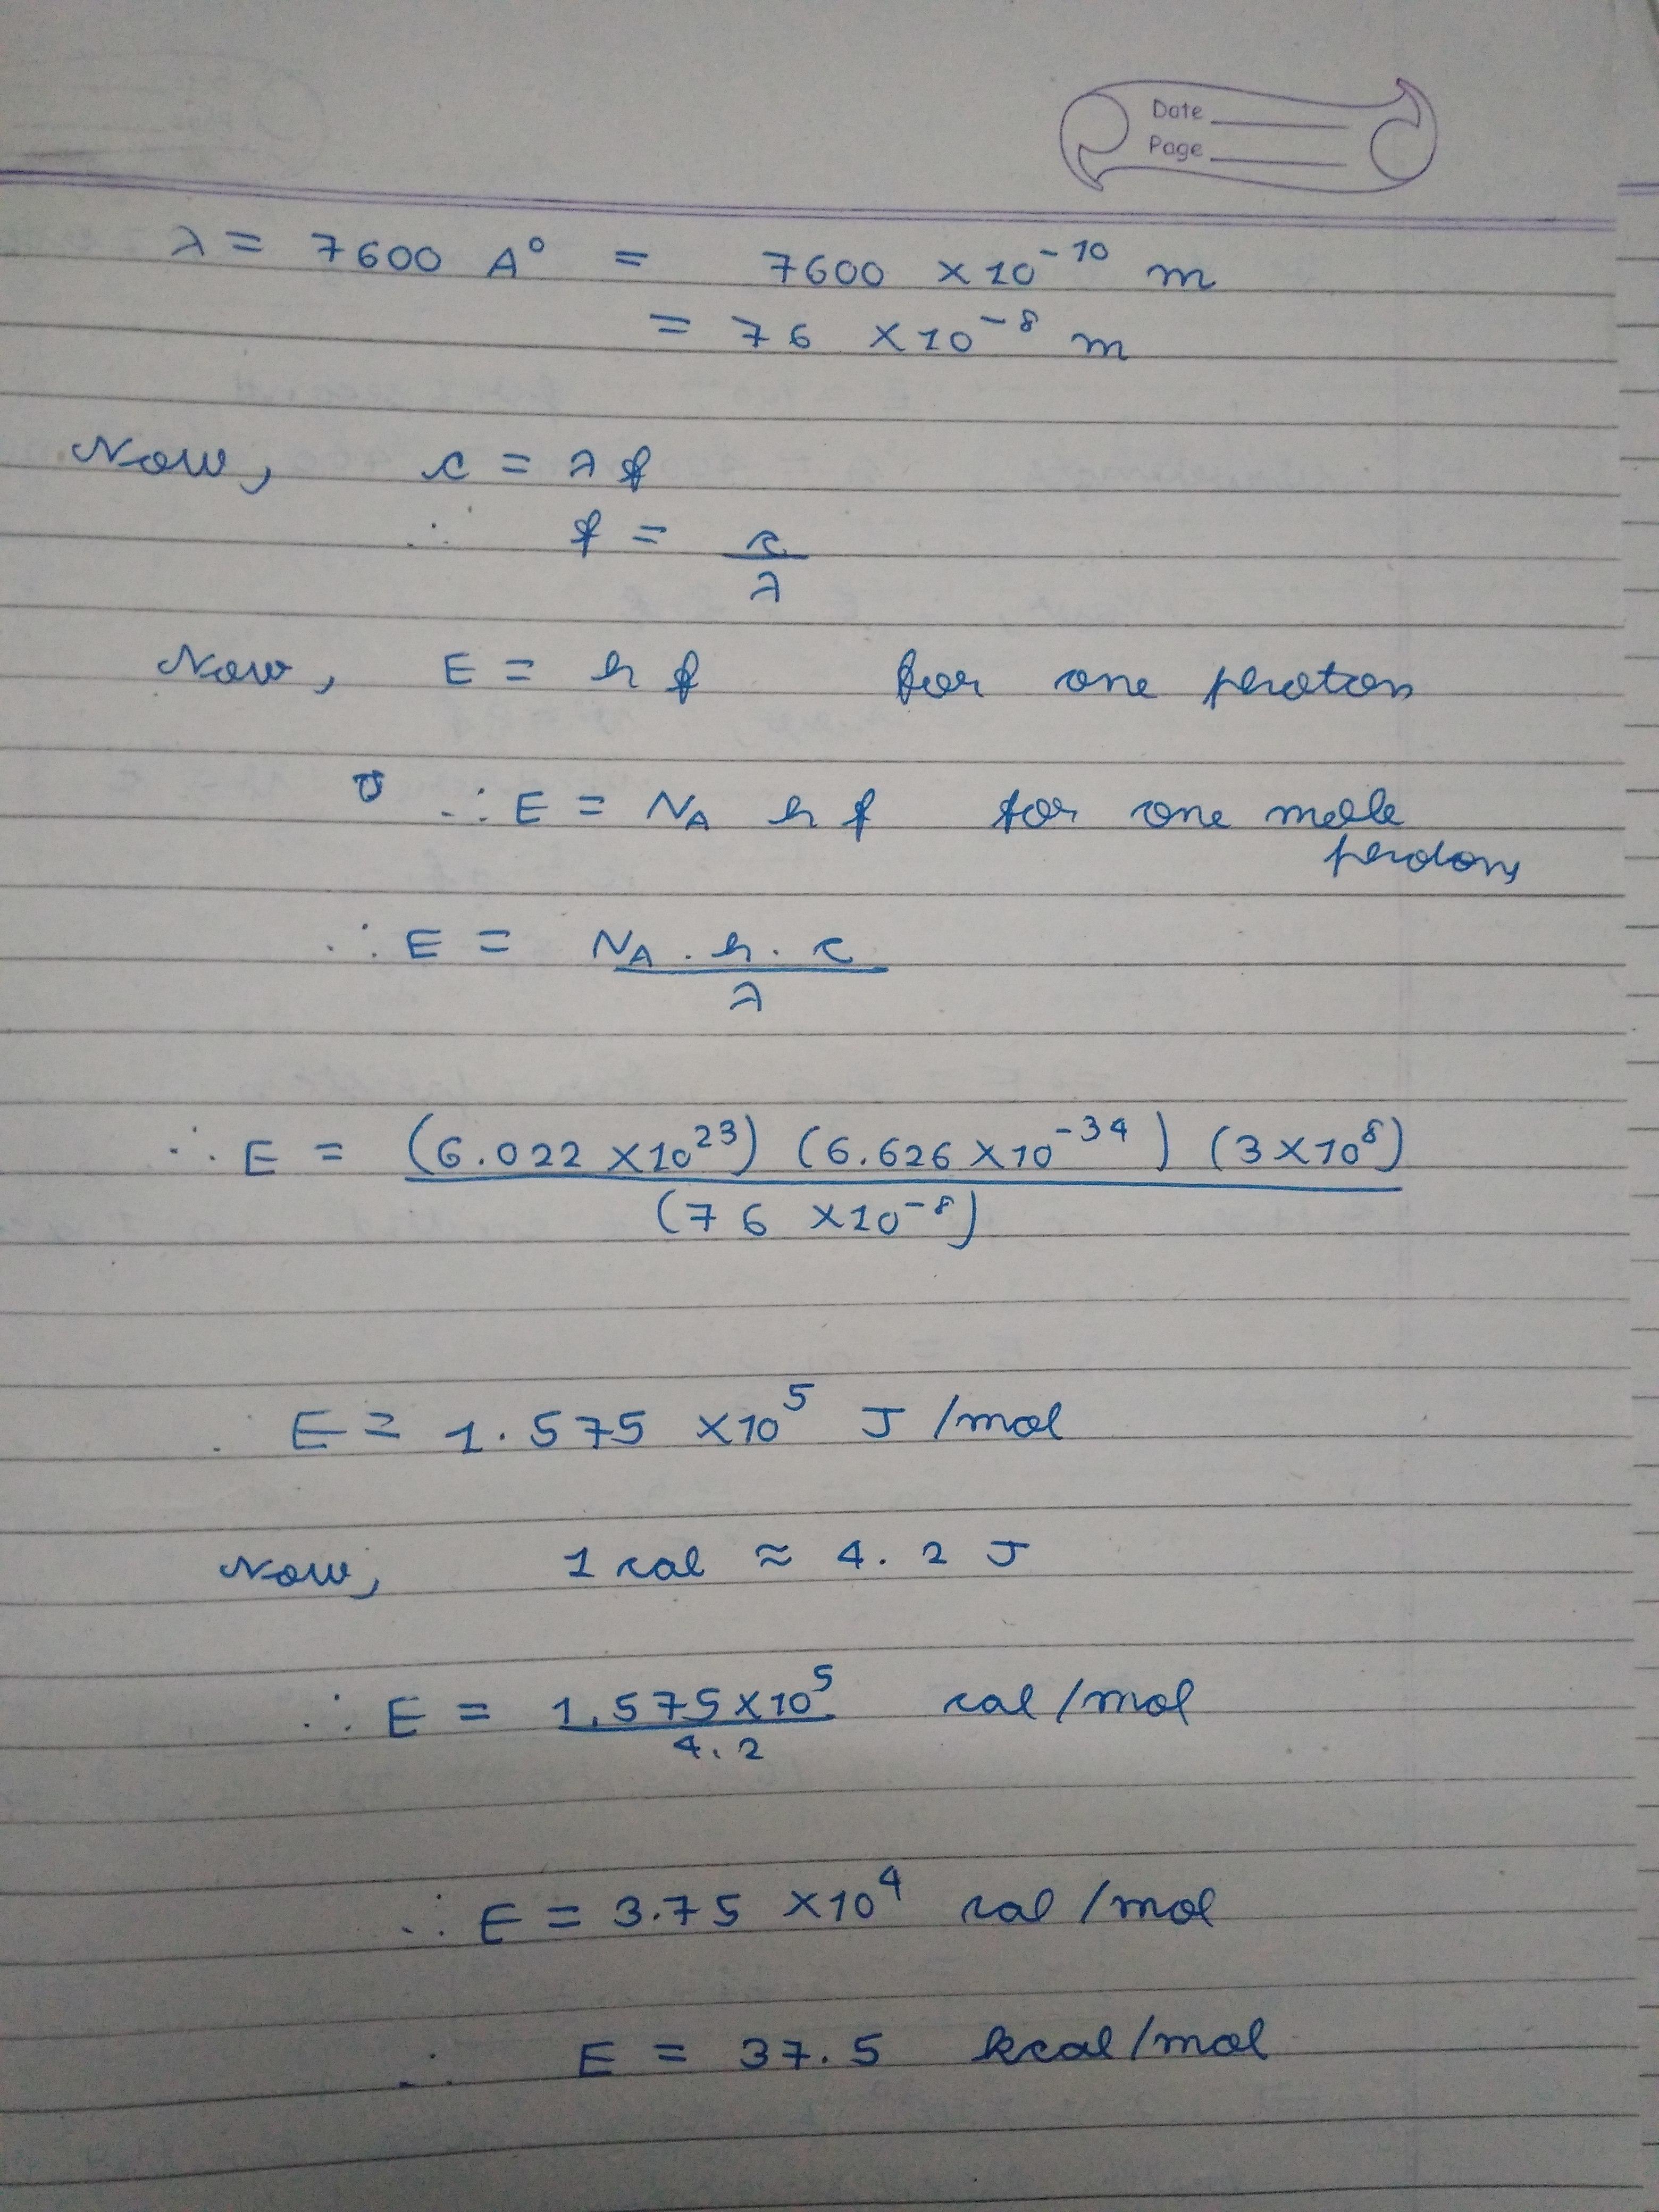 Date
Page
λ = 7600 A° = 7600 × 10⁻¹⁰ m
= 76 × 10⁻⁸ m
Now, c = λ f
∴ f = c/λ
Now, E = h f for one photon
∴ E = N_A h f for one mole
photons
∴ E = N_A . h . c / λ
∴ E = (6.022 × 10²³) (6.626 × 10⁻³⁴) (3 × 10⁸) / (76 × 10⁻⁸)
E = 1.575 × 10⁵ J /mol
Now, 1 cal ≈ 4.2 J
∴ E = 1.575 × 10⁵ / 4.2 cal /mol
∴ E = 3.75 × 10⁴ cal /mol
∴ E = 37.5 kcal/mol